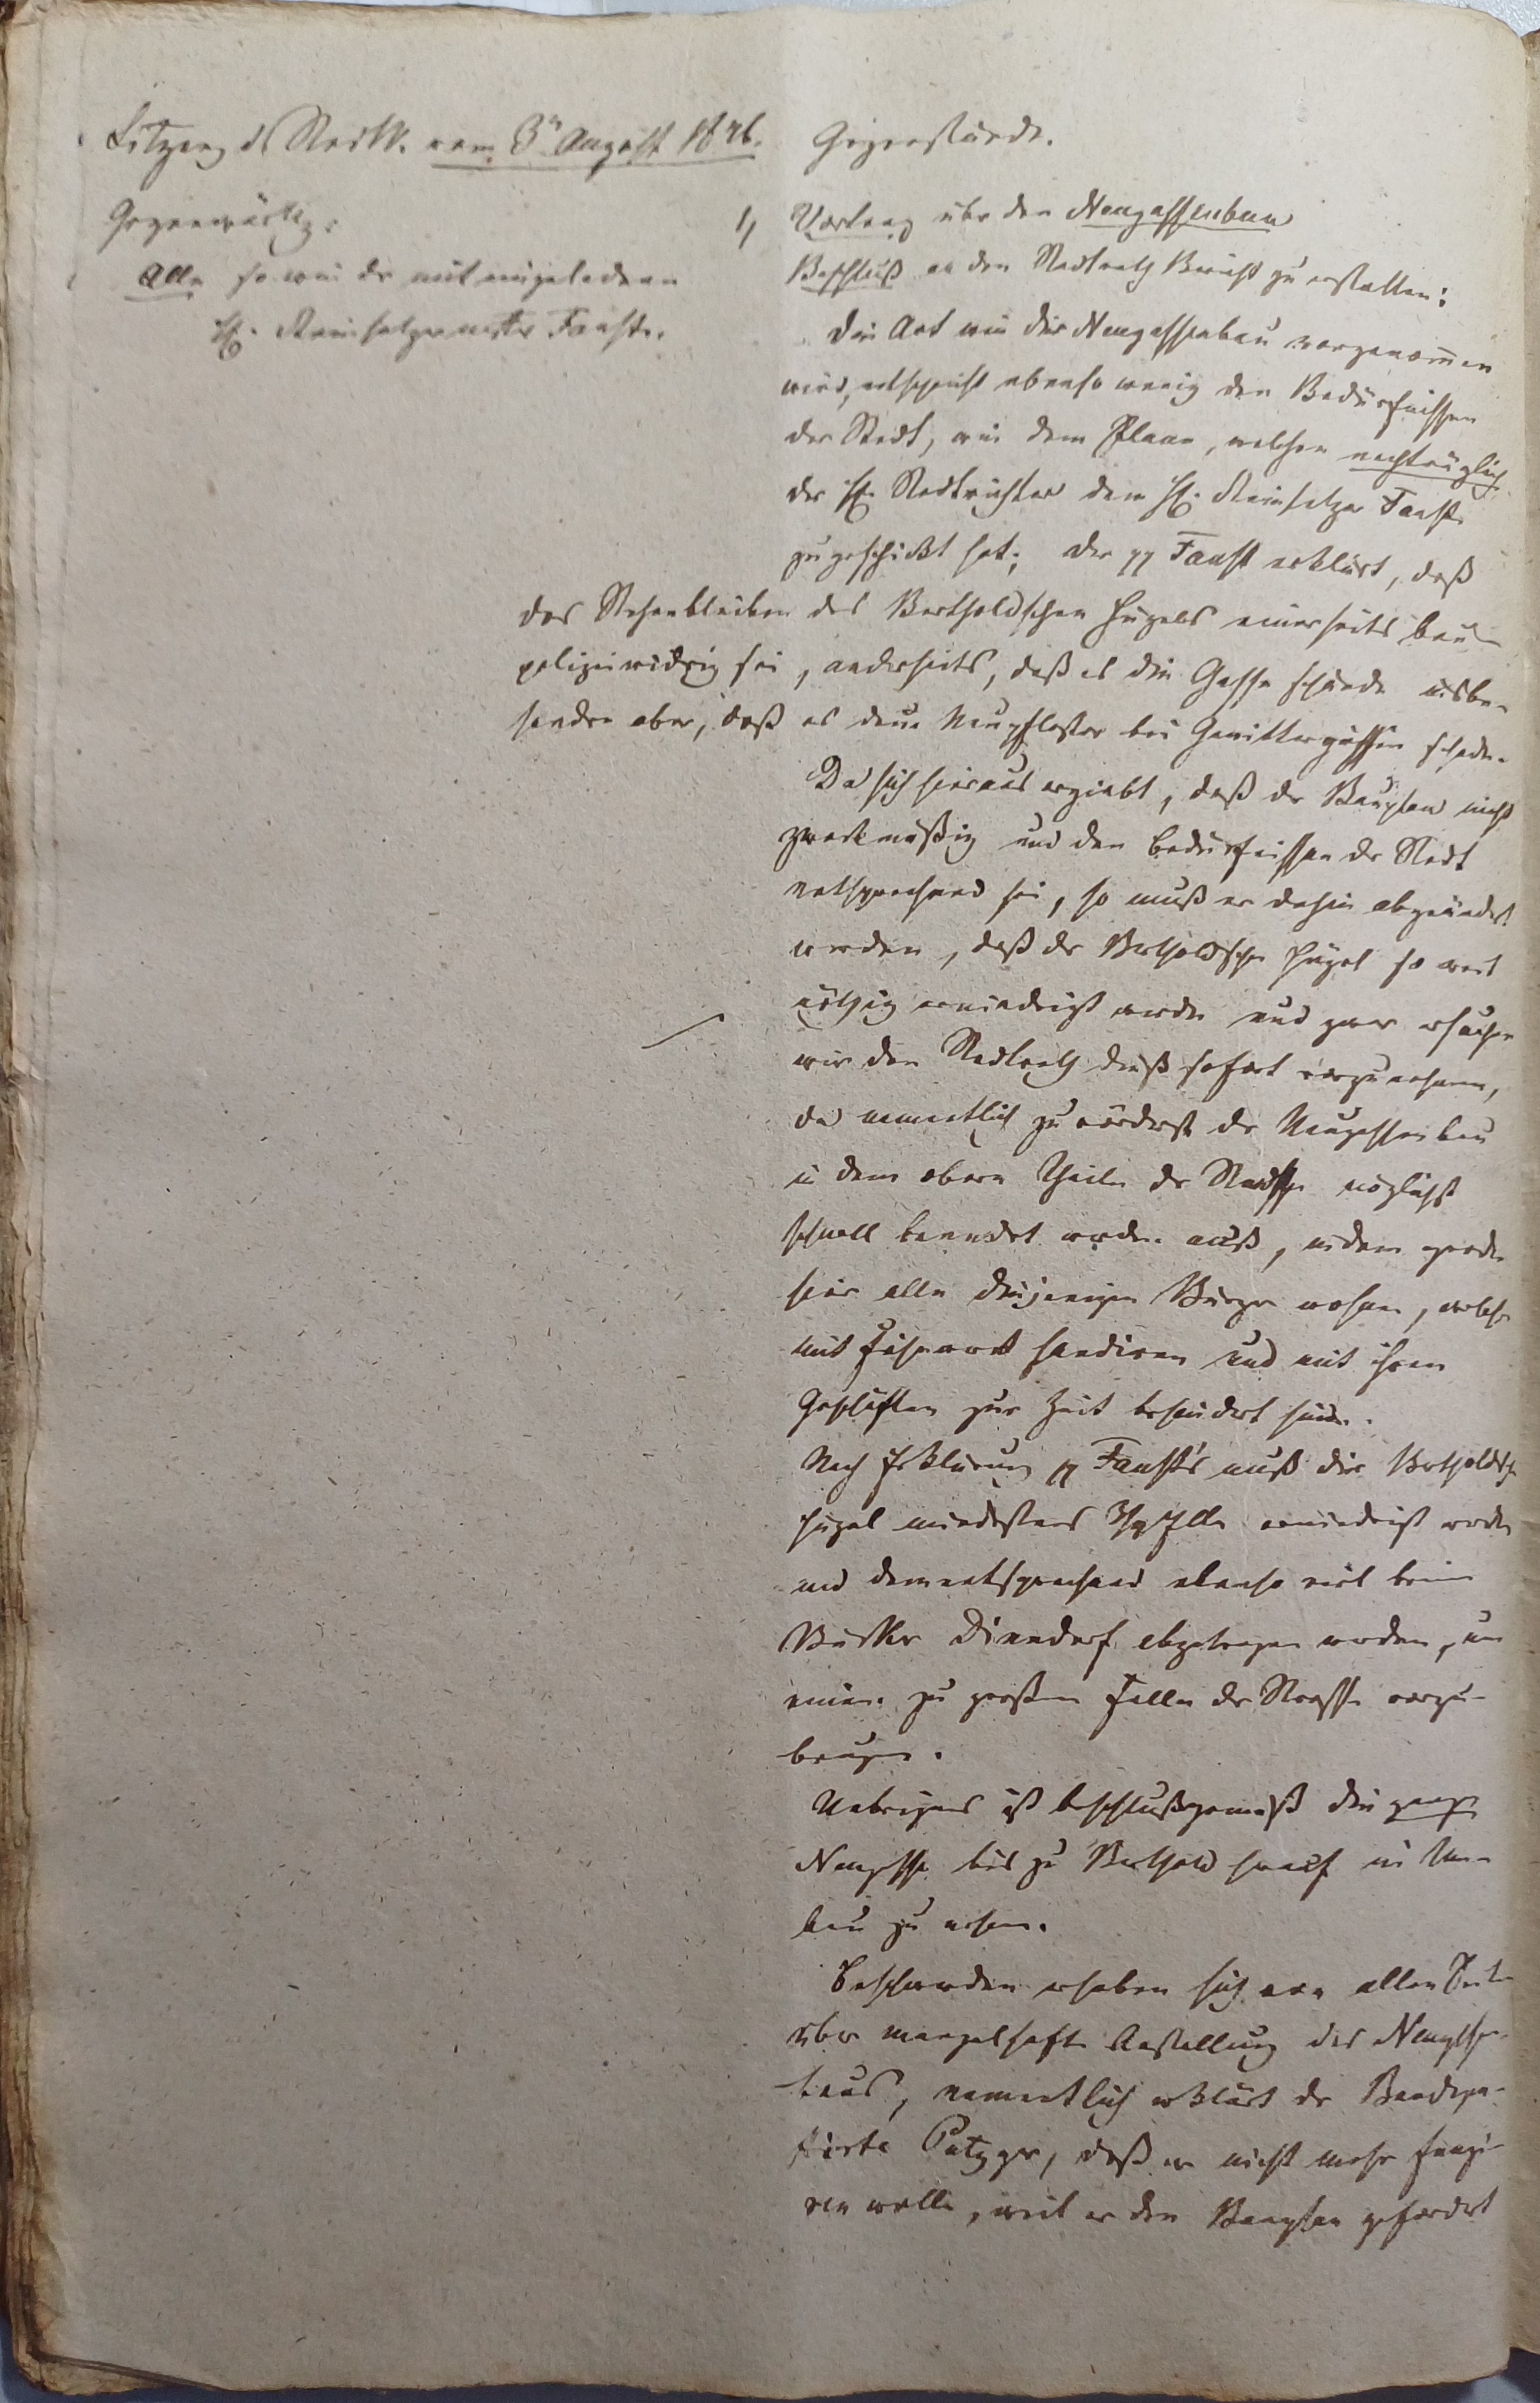 Sitzung d. Stadtv. vom 3n August 1846.
Gegenwärtig:
Alle so wie der mit eingeladene
H. Steinsetzermeister Faust.
Gegenstände.
1, Vortrag über den Neugassenbau
Beschluß an den Stadtrath Bericht zu erstatten:
Die Art wie der Neugassenbau vorgenommen
wird, entspricht ebenso wenig den Bedürfnissen
der Stadt, wie dem Plane, welchen nachträglich
der H. Stadtrichter dem H. Steinsetzer Faust
zugeschickt hat; der pp Faust erklärt, daß
das Stehenbleiben des Bertholdschen Hügels einerseits bau-
polizeiwidrig sei, anderseits, daß es die Gasse schände insbe-
sondre aber, daß es dem Neupflaster bei Gewittergüssen schade.
Da sich hieraus ergiebt, daß der Bauplan nicht
zweckmäßig und den Bedürfnissen der Stadt
entsprechend sei, so muß er dahin abgeändert
werden, daß der Bertholdsche Hügel so weit
nöthig erniedrigt werde und zwar ersuchen
wir den Stadtrath dieß sofort vorzunehmen,
da namentlich zuvörderst der Neugassenbau
in dem obern Theile der möglichst
schnell beendet werden muß, indem gerade
hier alle diejenigen Bürger wohnen, welche
mit Fuhrwerk handiren und mit ihren
Geschäften zur Zeit behindert sind.
Nach Erklärung pp Faust's muß der Bertholdsche
Hügel mindestens 3/4 Elle erniedrigt werden
und dementsprechend ebenso viel beim
Dinndorf abgetragen werden, um
einem zu großen Falle der Strasse vorzu-
beugen.
Uebrigens ist beschlußgemäß die ganze
Neugasse bis zu Berthold hinauf in Um-
bau zu nehmen.
Beschwerden erheben sich von allen Seiten
über mangelhafte Anstellung des Neugassen-
baus, namentlich erklärt der Baudepu-
tirte Patzger, daß er nicht mehr fungi-
ren wolle, weil er den Bauplan gefordert